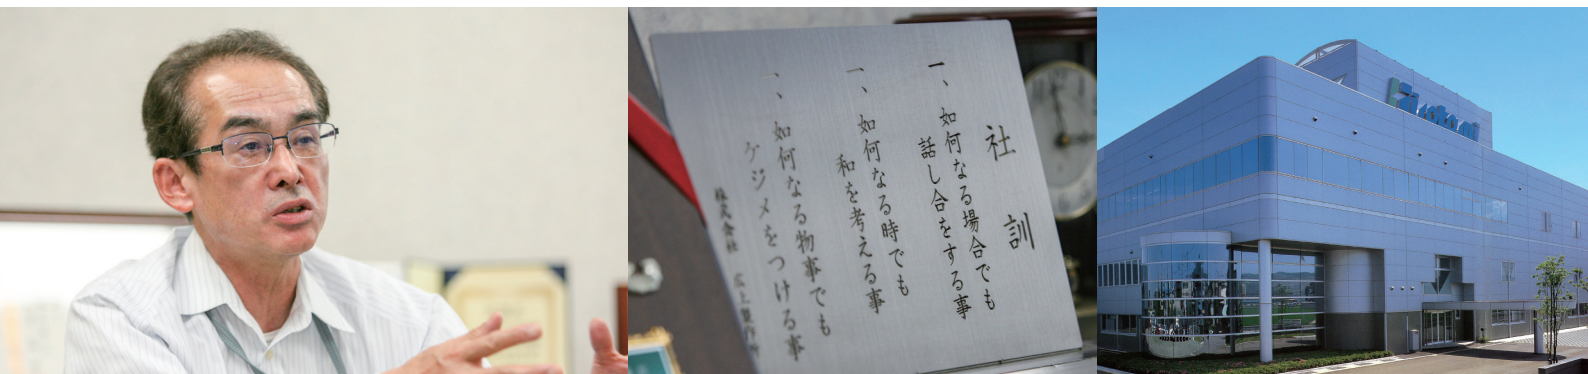 社訓
一、如何なる場合でも
話し合をする事
一、如何なる時でも
和を考える事
一、如何なる物事でも
ケジメをつける事
株式会社 広上製作所